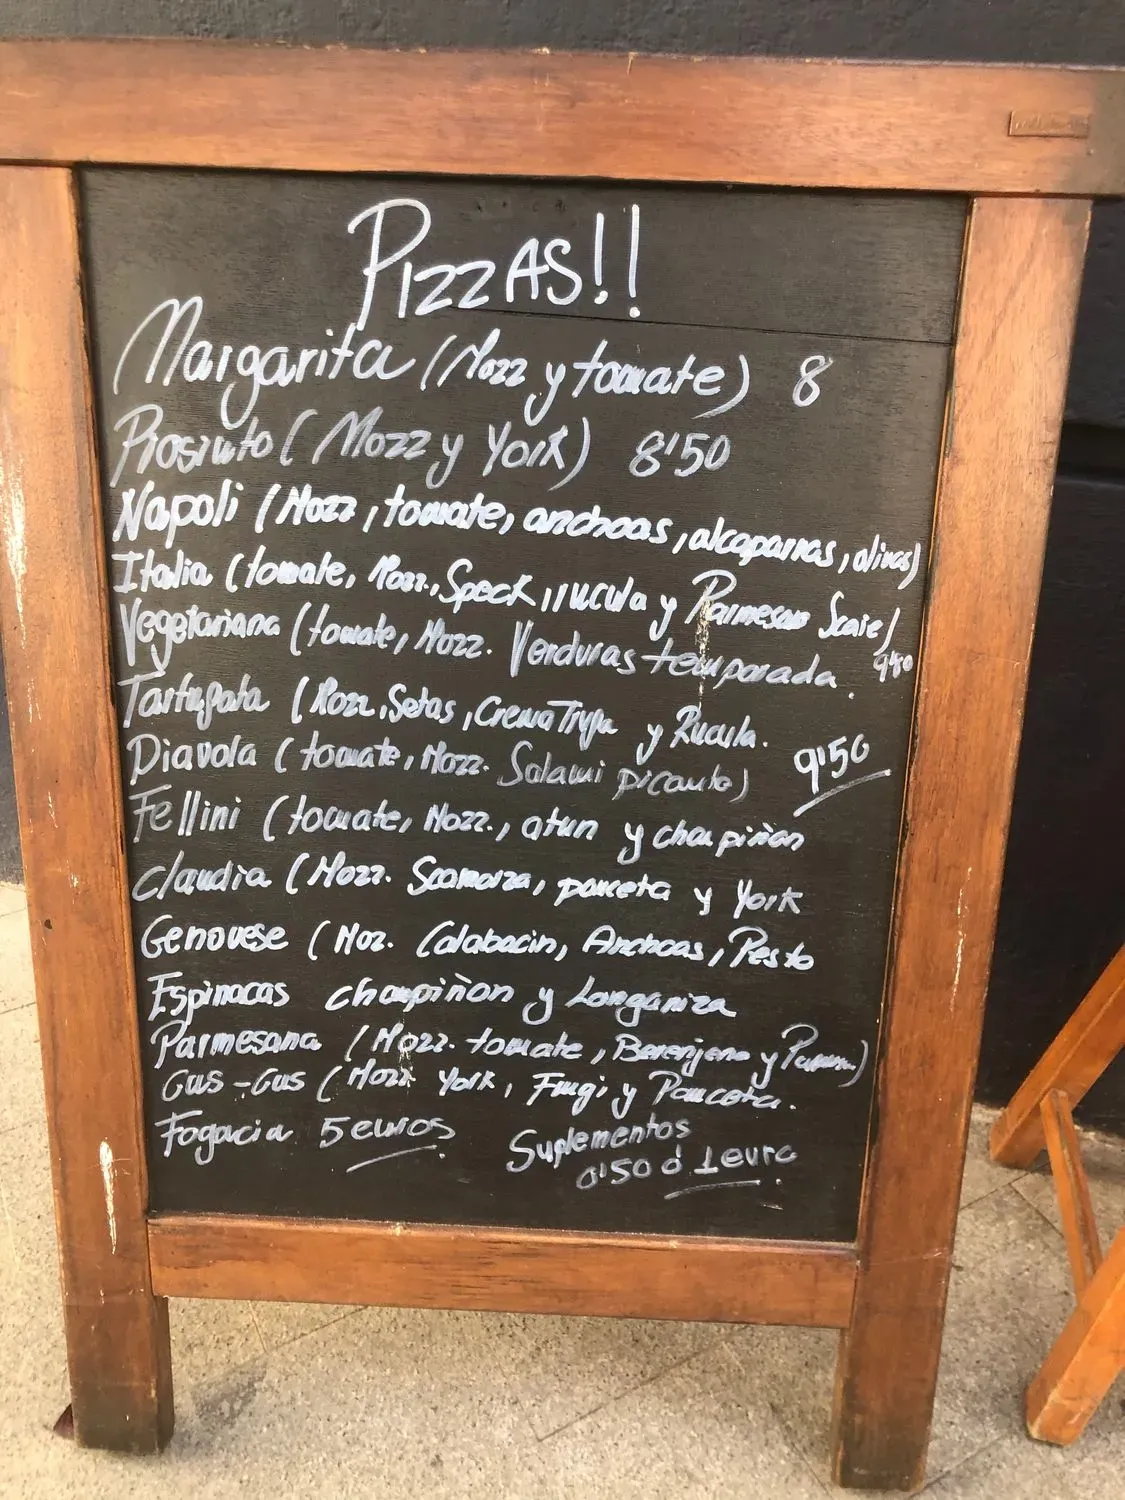 PIZZAS!!
Margarita (Mozz y tomate) 8
Prosciutto (Mozz y York) 8'50
Napoli (Mozz, tomate, anchoas, alcaparras, olivas)
Italia (tomate, Mozz., Speck, rucula y Parmesano Scaie)
Vegetariana (tomate, Mozz. Verduras temporada. 9'50
Tartufata (Mozz, Setas, Crema Trufa y Rucula.
Diavola (tomate, Mozz. Salami picante) 9'50
Fellini (tomate, Mozz., atun y champiñon
Claudia (Mozz. Scamorza, panceta y York
Genovese (Moz. Calabacin, Anchoas, Pesto
Espinacas champiñon y Longaniza
Parmesana (Mozz. tomate, Berenjena y Parm)
Gus-Gus (Mozz York, Fungi y Panceta.
Fogacia 5 euros
Suplementos
0'50 ó 1 euro